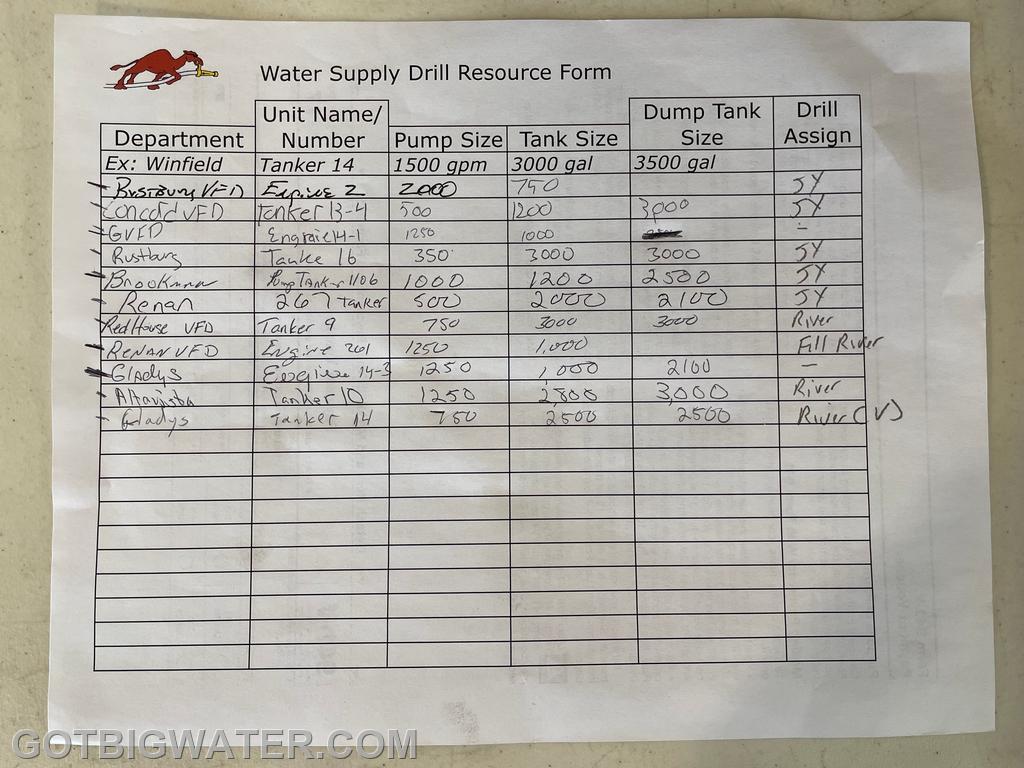 Water Supply Drill Resource Form
Department Unit Name/ Number Pump Size Tank Size Dump Tank Size Drill Assign
Ex: Winfield Tanker 14 1500 gpm 3000 gal 3500 gal
Rustburg VFD Engine 2 2000 750 SY
Concord VFD Tanker 13-4 500 1200 3000 SY
GVFD Engine 14-1 1250 1000 -
Rustburg Tanke 16 350 3000 3000 SY
Pump Tanker 1106 1000 1200 2500 SY
Renan 267 Tanker 500 2000 2100 SY
Red House VFD Tanker 9 750 3000 3000 River
RENAN VFD Engine 201 1250 1,000 Fill River
Gladys Engine 14-3 1250 1,000 2100 -
Altavista Tanker 10 1250 2,800 3,000 River
Gladys Tanker 14 750 2500 2500 River (V)
GOTBIGWATER.COM